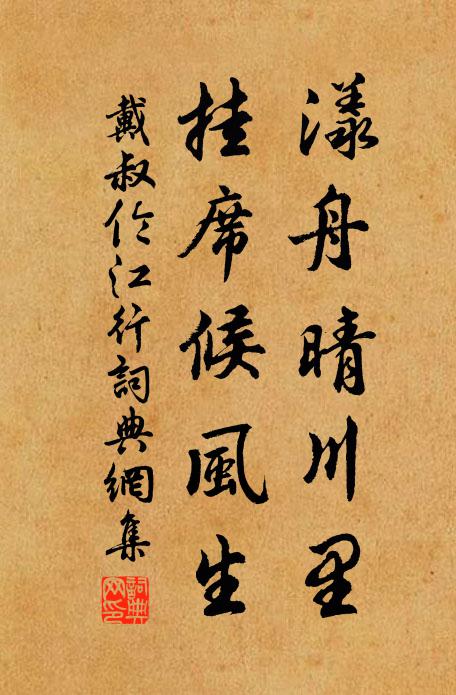 漾舟晴川里
挂席候風生
戴叔伦江行詞典網集
詞典网印